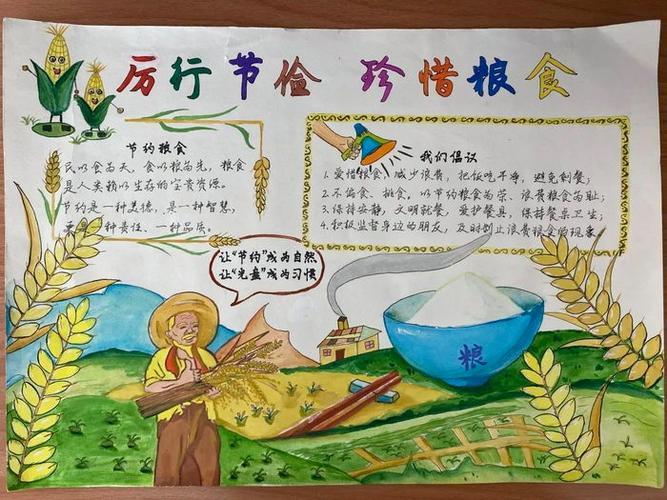 厉行节俭 珍惜粮食
节约粮食
民以食为天，食以粮为先，粮食
是人类赖以生存的宝贵资源。
节约是一种美德，是一种智慧，
更是一种责任、一种品质。
我们倡议
1. 爱惜粮食，减少浪费，把饭吃干净，避免剩餐；
2. 不偏食、挑食，以节约粮食为荣、浪费粮食为耻；
3. 保持安静，文明就餐，爱护餐具，保持餐桌卫生；
4. 积极监督身边的朋友，及时制止浪费粮食的现象
让“节约”成为自然
让“光盘”成为习惯
粮